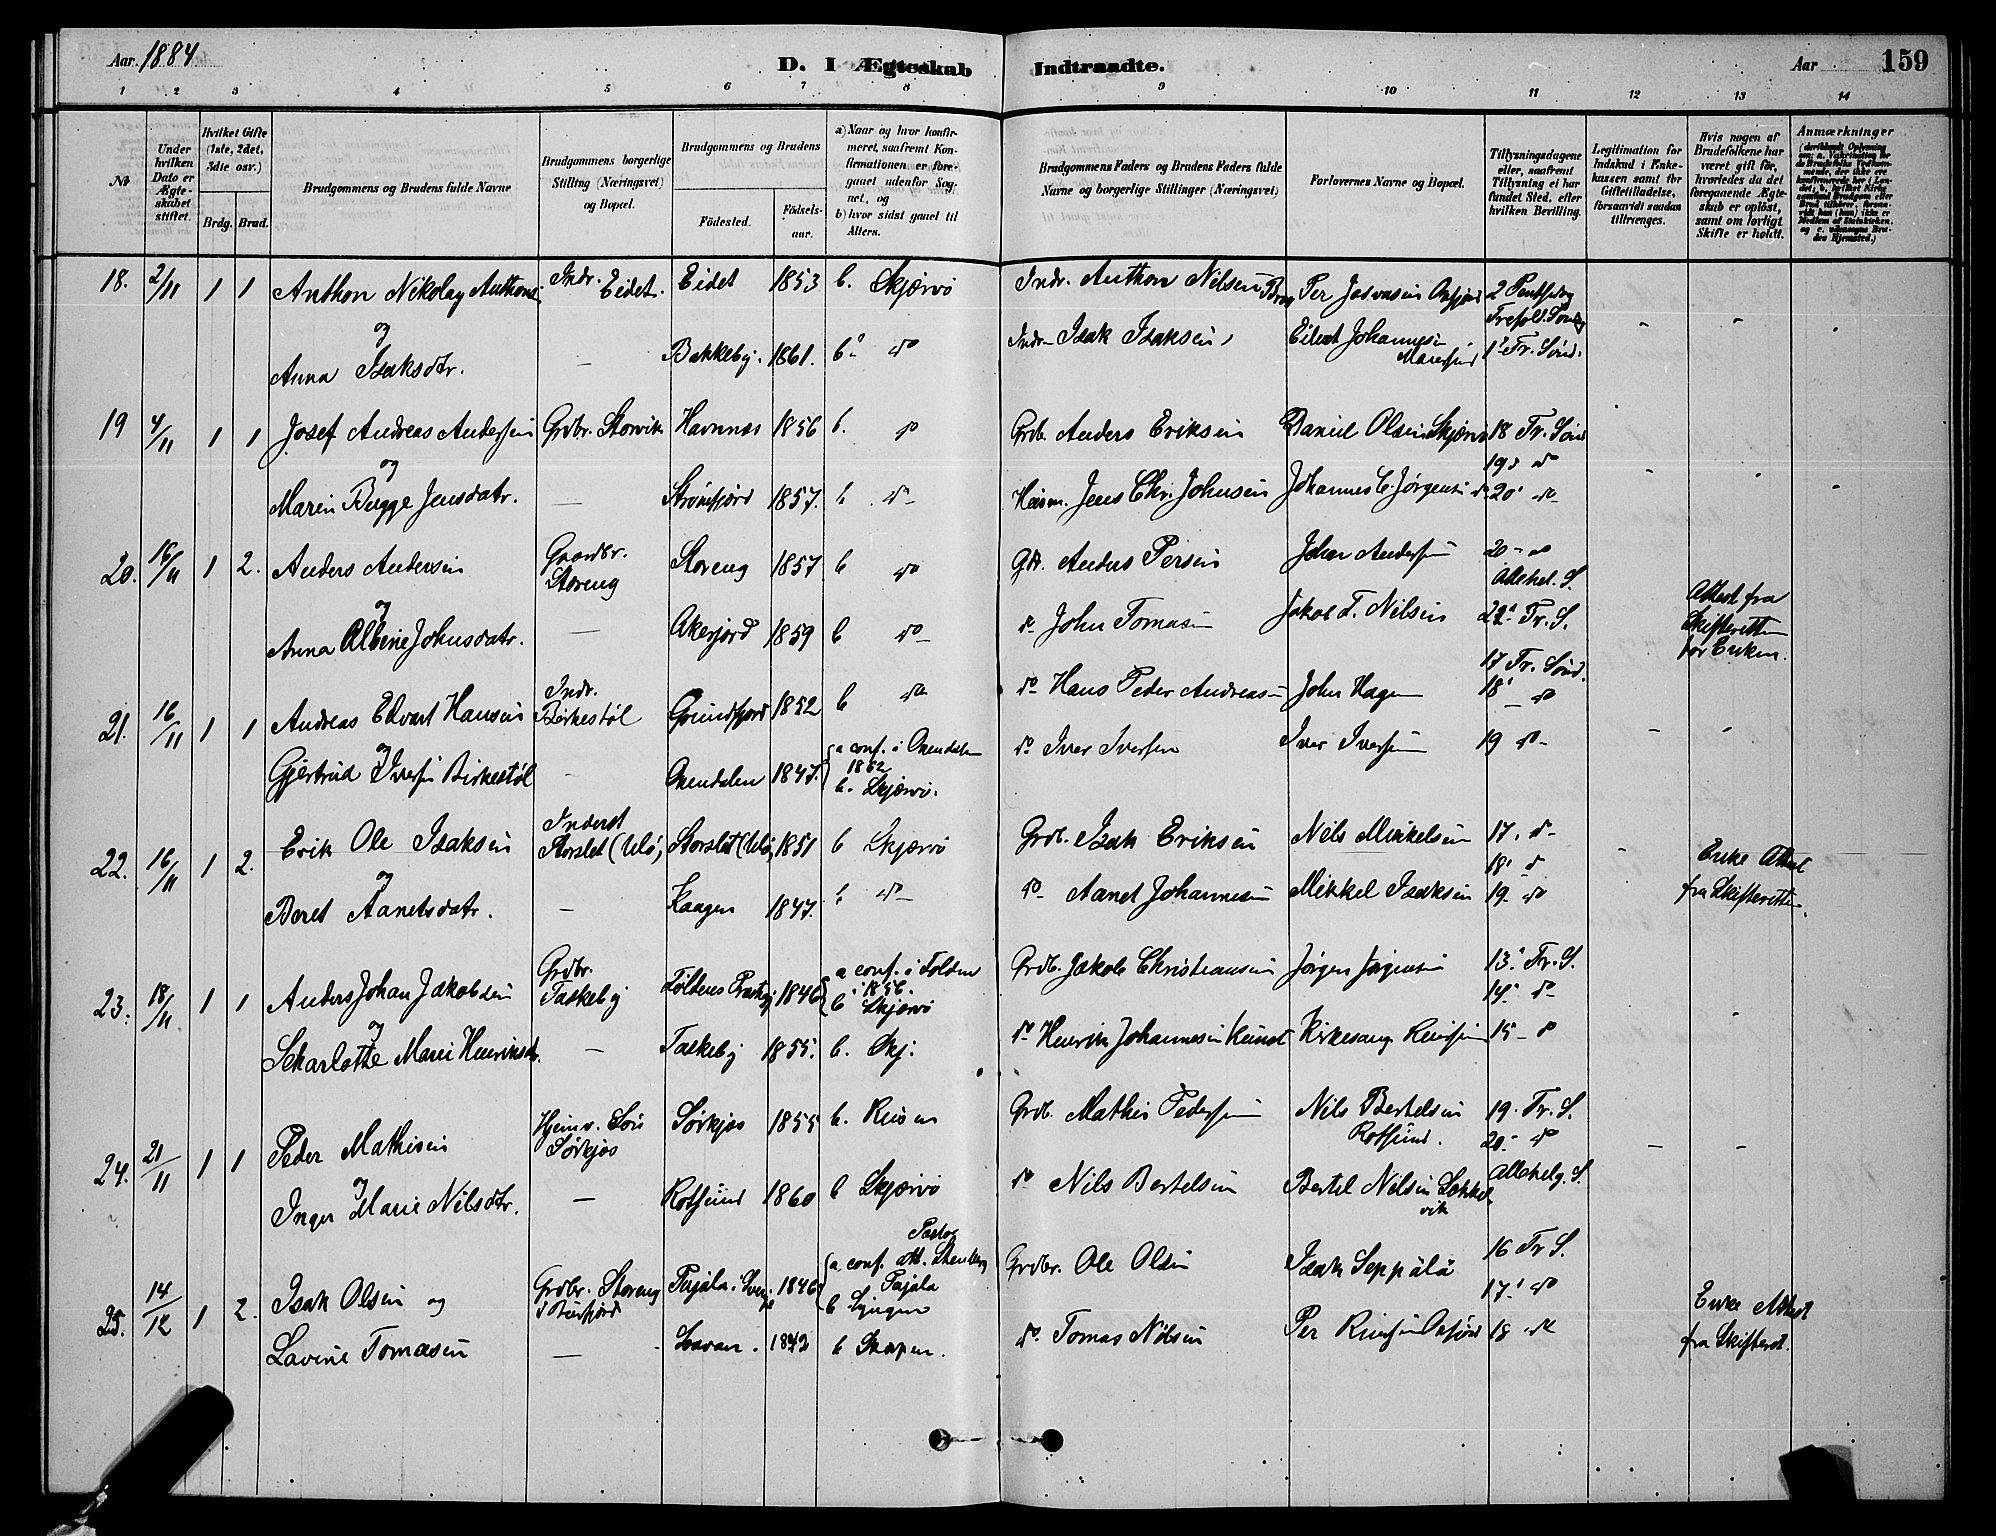 Aar. 1884
D. I Ægteskab Indtraadte.
Aar 159
1 2 3 4 5 6 7 8 9 10 11 12 13 14
No
Under hvilken Dato er Ægteskabet stiftet.
Hvilket Gifte (1ste, 2det, 3die osv.)
Brdg. Brud.
Brudgommens og Brudens fulde Navne
Brudgommens borgerlige Stilling (Næringsvei) og Bopæl.
Brudgommens og Brudens
Fødested. Fødselsaar.
a) Naar og hvor konfirmeret, saafremt Konfirmationen er foregaaet udenfor Sognet, og
b) hvor sidst gaaet til Alters.
Brudgommens Faders og Brudens Faders fulde Navne og borgerlige Stillinger (Næringsvei)
Forlovernes Navne og Bopæl.
Tillysningsdagene eller, saafremt Tillysning ei har fundet Sted, efter hvilken Bevilling.
Legitimation for Indskud i Enkekassen samt for Giftetilladelse, forsaavidt saadan tiltrænges.
Hvis nogen af Brudefolkene har været gift før, hvorledes da det foregaaende Ægteskab er opløst, samt om lovligt Skifte er holdt.
Anmærkninger
18. 2/11 1 1 Anthon Nikolay Anthons. Indr. Eidet. Eidet 1853 b. Skjærvø Indr. Anthon Nilsen Per Josvasen 2
og
Anna Isaksdtr. — Bakkeby. 1861. b. do Indr. Isak Isaksen, Eilert Johannesen 1 Tr. Sønd.
19 4/11 1 1 Josef Andreas Andersen Grdbr. Storvik Havnnes 1856 b. do Grdb. Anders Eriksen Daniel Olsen Skjærvø 18 Tr. Sønd
og 19 do
Maren Bugge Jensdatr. — Strømfjord 1857. b do Husm. Jens Chr. Johnsen Johannes C. Jørgensen 20 do
20. 16/11 1 2. Anders Andersen Gaardbr. Storeng Storeng 1857 b do Gdr. Anders Persen Johan Andersen 20 do
og Allehel. S.
Anna Albine Johnsdatr. — Akerjord 1859 b do do John Tomasen Jakob T. Nilsen 22 Tr. S. Attest fra Skifteretten for Enken.
21. 16/11 1 1 Andreas Edvart Hansen Indr. Birkestøl Grundfjord 1852 b do do Hans Peder Andreasen John Hagen 17 Tr. Sønd. 18 do
og
Gjertrud Iversen Birkestøl — Øxendalen 1847. a conf. i Øxendalen 1862 b. Skjærvø. do Iver Iversen Iver Iversen 19 do
22. 16/11 1 2. Erik Ole Isaksen Inderst Storslet (Ulø) Storslet (Ulø) 1851 b Skjærvø Grdb. Isak Eriksen Nils Mikkelsen 17. do
og 18 do
Beret Aanetsdatr. — Kaagen 1847. b do do Aanet Johannesen Mikkel Isaksen 19. do Enke Attest fra Skifteretten.
23. 18/11 1 1 Anders Johan Jakobsen Grdbr. Taskeby Foldens Prstgj 1846 a conf. i Folden 1856. b Skjærvø Grdb. Jakob Christiansen Jørgen Jørgensen 13 Tr. S.
og 14 do
Scharlotte Marie Henriksdr. — Taskeby 1855. b. Skj: do Henrik Johannesen Kirkesang. 15 do
24. 21/11 1 1 Peder Mathisen Hjemv. Sørkjos Sørkjos 1855 b. Reisen Grdb. Mathis Pedersen Nils Bertelsen Rotsund. 19. Tr. S.
og 20 do
Inger Marie Nilsdtr. — Rotsund 1860 b Skjærvø do Nils Bertelsen Bertel Nilsen Allehelg. S.
25. 14/12 1 2. Isak Olsen og Grdbr. Storeng Pajala. 1846 a conf. Att. Pastor Pajala b Lyngen Grdbr. Ole Olsen Isak Seppälä 16 Tr S.
17. do
Lavine Tomasen — 1842 b do Tomas Nilsen Per 18 do Enke Attest fra Skifteret.